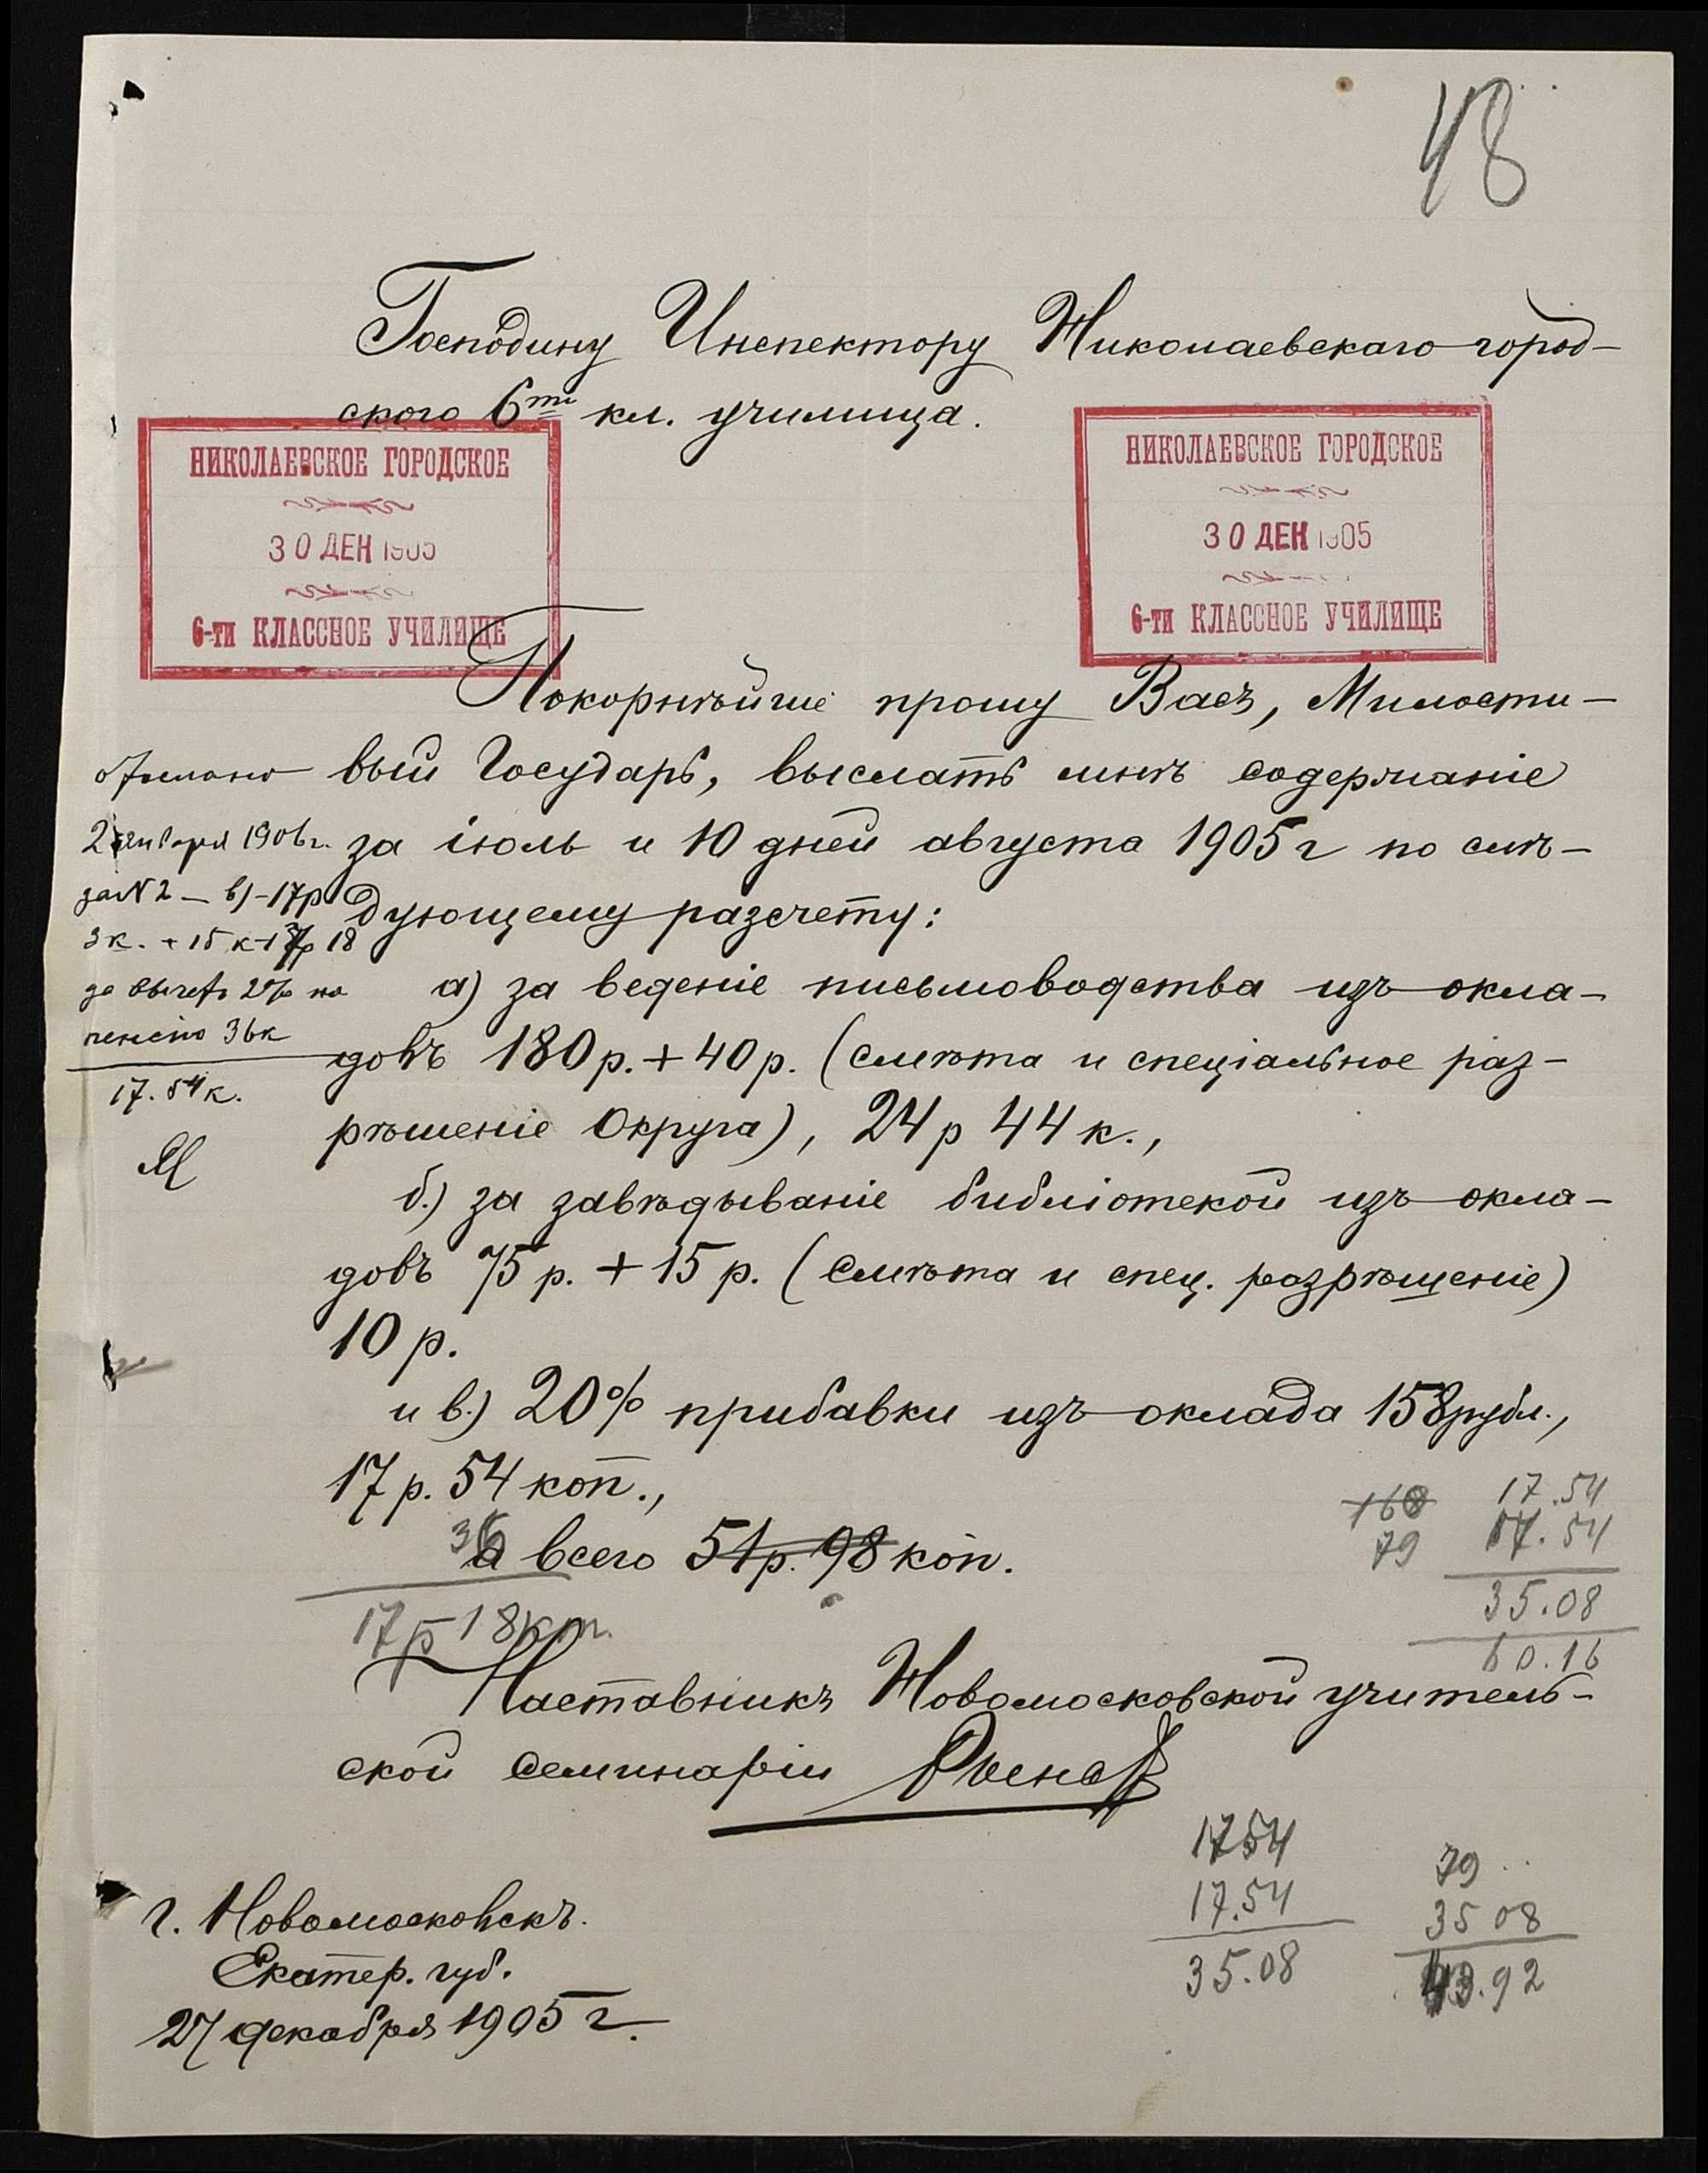 48
Господину Инспектору Николаевскаго город-
ского 6ти кл. училища.
НИКОЛАЕВСКОЕ ГОРОДСКОЕ
30 ДЕН 1905
6-ти КЛАССНОЕ УЧИЛИЩЕ
НИКОЛАЕВСКОЕ ГОРОДСКОЕ
30 ДЕН 1905
6-ти КЛАССНОЕ УЧИЛИЩЕ
Покорнѣйше прошу Васъ, Милости-
вый Государь, выслать мнѣ содержаніе
за іюль и 10 дней августа 1905 г по слѣ-
дующему разсчету:
а) за веденіе письмоводства изъ окла-
довъ 180 р. + 40 р. (смѣта и спеціальное раз-
рѣшеніе Округа), 24 р 44 к.,
б.) за завѣдываніе библіотекой изъ окла-
довъ 75 р. + 15 р. (смѣта и спец. разрѣшеніе)
10 р.
и в.) 20% прибавки изъ оклада 158 рубл.,
17 р. 54 коп.,
36
а всего 51 р. 98 коп.
17 р 18 коп.
Наставникъ Новомосковской учитель-
ской семинаріи
г. Новомосковскъ.
Екатер. губ.
27 декабря 1905 г.
2 января 1906 г.
за N 2 — в) - 17 р
3 к. + 15 к 18
за вычет 2% на
пенсію 36 к
17. 54 к.
160
79
17.54
17.54
35.08
60.16
1754
17.54
35.08
79
35 08
43.92